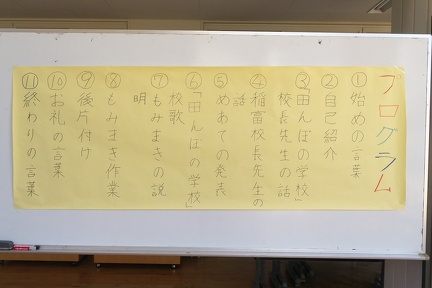 プログラム
①始めの言葉
②自己紹介
③「田んぼの学校」
校長先生の話
④稲富校長先生の
話
⑤めあての発表
⑥「田んぼの学校」
校歌
⑦もみまきの説
明
⑧もみまき作業
⑨後片付け
⑩お礼の言葉
⑪終わりの言葉